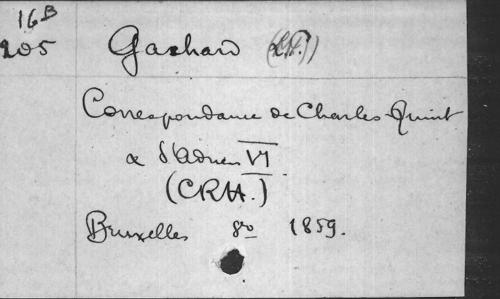 16B
205
Gachard (L.P.)
Correspondance de Charles-Quint
& d'Adrien VI
(CRH.)
Bruxelles 8vo 1859.